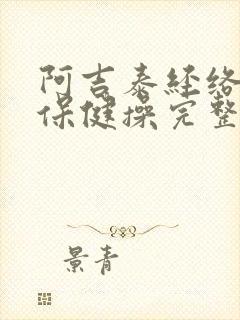 阿吉泰经络
保健操完整
景青